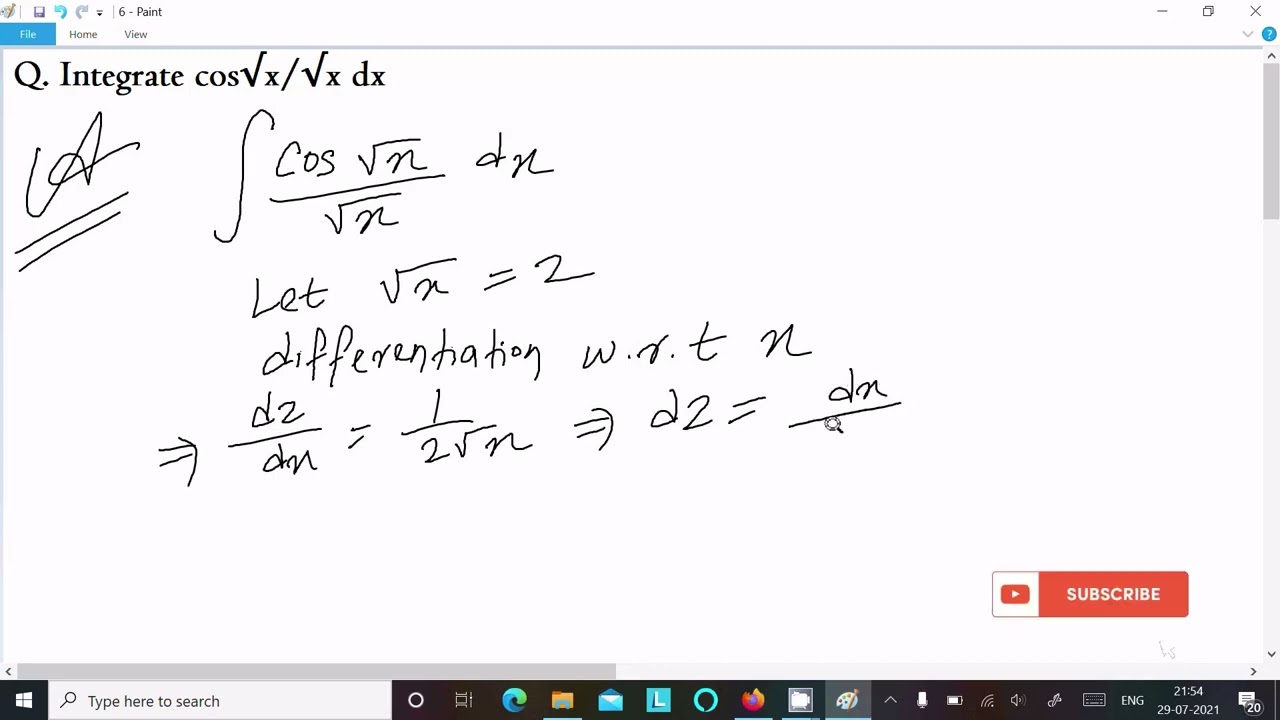 6 - Paint
File Home View
Q. Integrate cos√x/√x dx
A
∫ cos √x / √x dx
Let √x = z
differentiation w.r.t x
⇒ dz/dx = 1/2√x ⇒ dz = dx
SUBSCRIBE
Type here to search
L
ENG
21:54
29-07-2021
20